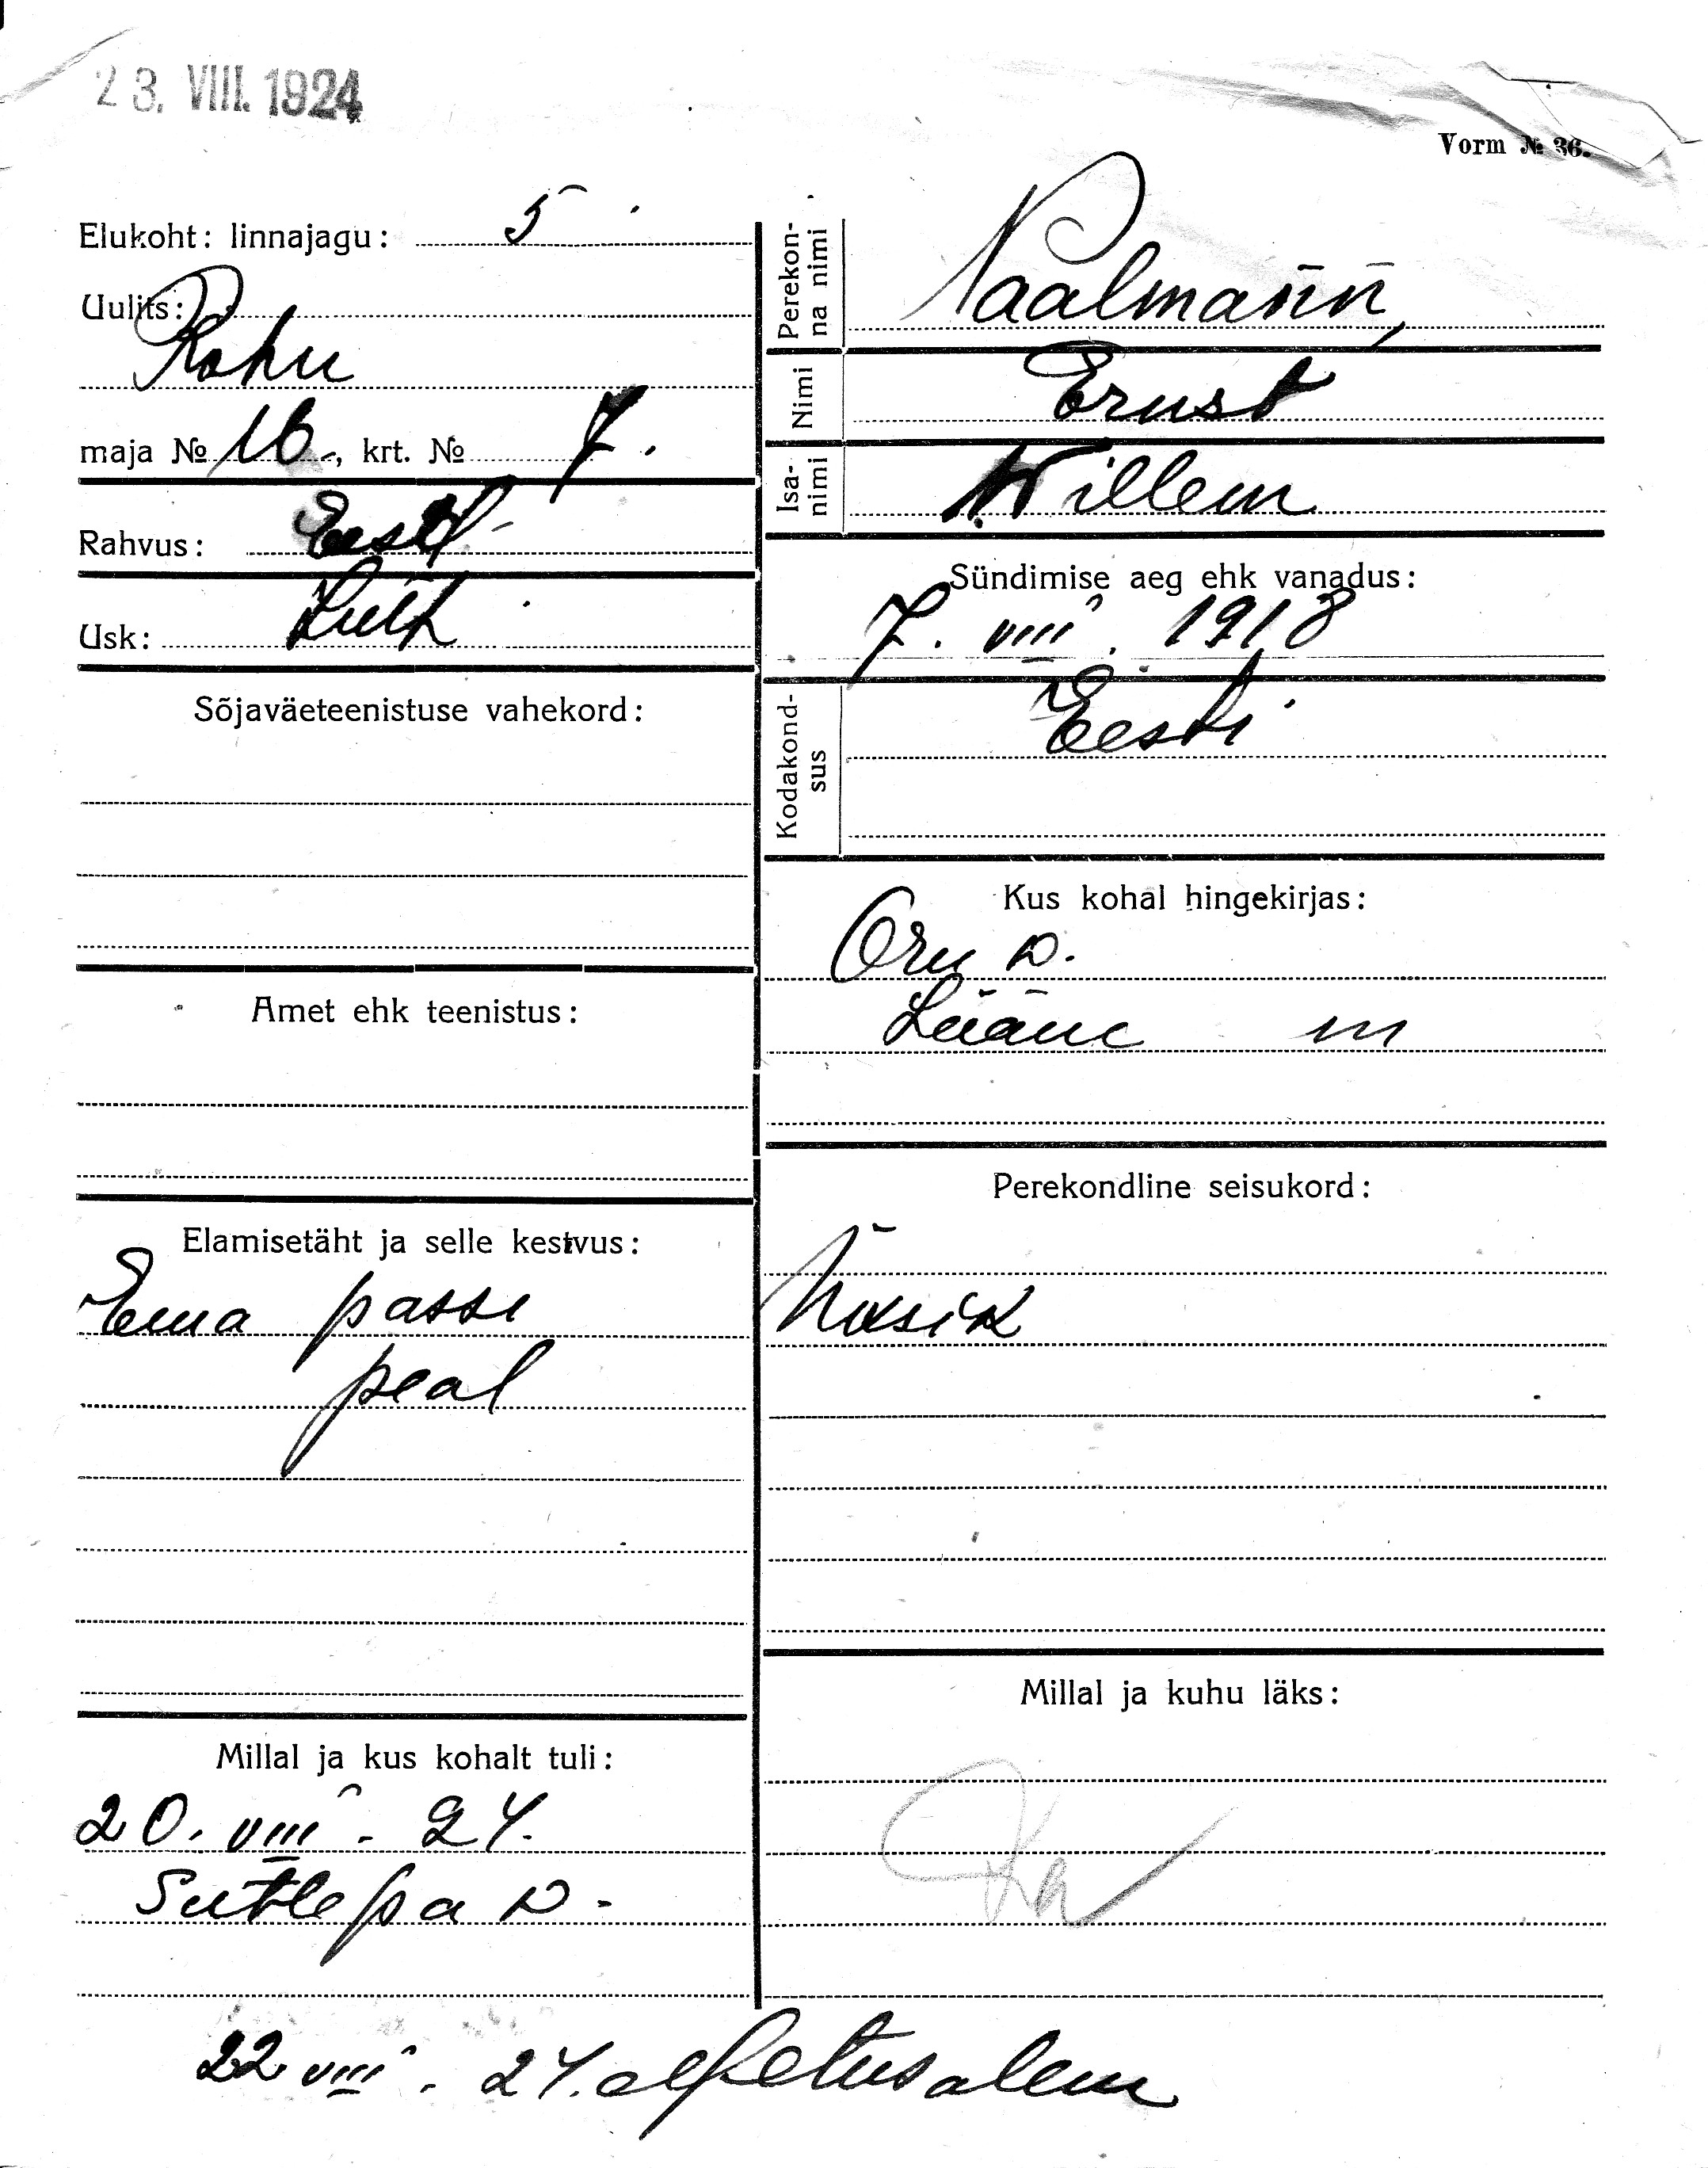 23. VIII. 1924
Vorm № 36.
Elukoht: linnajagu: 5
Uulits:
Rohu
maja № 16, krt. № 7.
Rahvus: Eesti
Usk: Luth
Sõjaväeteenistuse vahekord:
Amet ehk teenistus:
Elamisetäht ja selle kestvus:
Ema passi
peal
Millal ja kus kohalt tuli:
20. VIII. 24.
Sutlepa v.
Perekonna nimi
Naalmann,
Nimi
Ernst
Isanimi
Willem
Sündimise aeg ehk vanadus:
7. VIII. 1918
Kodakondsus
Eesti
Kus kohal hingekirjas:
Oru v.
Lääne m
Perekondline seisukord:
Millal ja kuhu läks:
22 VIII. 24.